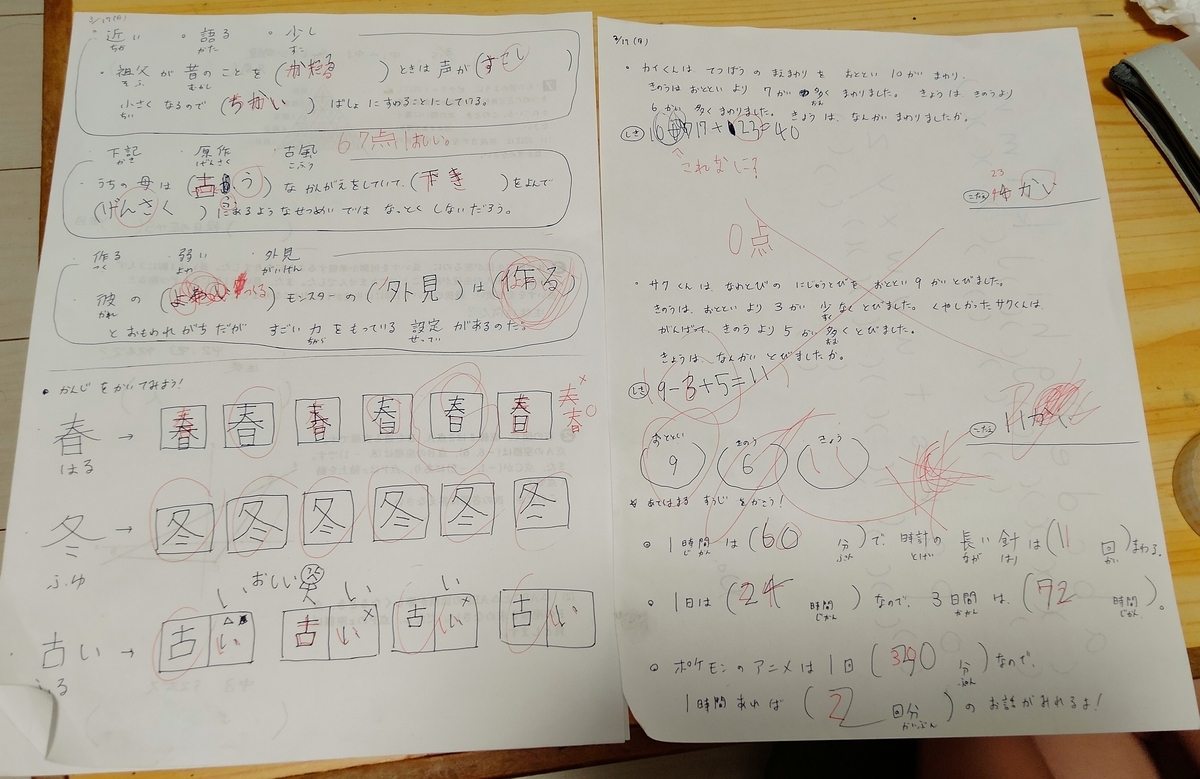 2/17(月)
・近い ・語る ・少し
ちか かた すこ
・祖父が昔のことを(かたる)ときは声が(すこし)
そふ むかし
小さくなるので(ちかい)ばしょにすわることにしている。
ちい
67点 おしい。
・下記 ・原作 ・古風
かき げんさく こふう
・うちの母は(古う)なかんがえをしていて、(下き)をよんで
(げんさく)にあるようなせつめいではなっとくしないだろう。
・作る ・弱い ・外見
つく よわ がいけん
・彼の(よわい つくる)モンスターの(外見)は(作る)
かれ
とおもわれがちだが すごい力をもっている設定があるのだ。
ちから せってい
・かんじをかいてみよう!
春 → 春 春 春 春 春 春 春
はる
冬 → 冬 冬 冬 冬 冬 冬
ふゆ
おしい い い い
古い → 古い 古い 古い 古い
ふる
2/17(月)
・カイくんは、てつぼうの前まわりをおととい10かいまわり、
きのうはおとといより7かい多くまわりました。きょうはきのうより
おお
6かい多くまわりました。きょうは、なんかいまわりましたか。
しき 17+23=40
これなに?
こたえ 23 かい
0点
・サクくんは、なわとびのにじゅうとびをおととい9かいとびました。
きのうは、おとといより3かい少なくとびました。くやしかったサクくんは、
すく
がんばって、きのうより5かい多くとびました。
おお
きょうは、なんかいとびましたか。
しき 9-3+5=11
こたえ 11かい
おととい きのう きょう
9 6 11
※あてはまるすうじをかこう!
◎ 1時間は(60 分)で、時計の長い針は(11 回)まわる。
じかん ぷん とけい なが はり かい
◎ 1日は(24 時間)なので、3日間は、(72 時間)。
じかん かかん じかん
◎ ポケモンのアニメは1回(30 分)なので、
ぷん
1時間あれば(2 回分)のお話がみれるよ!
かいぶん